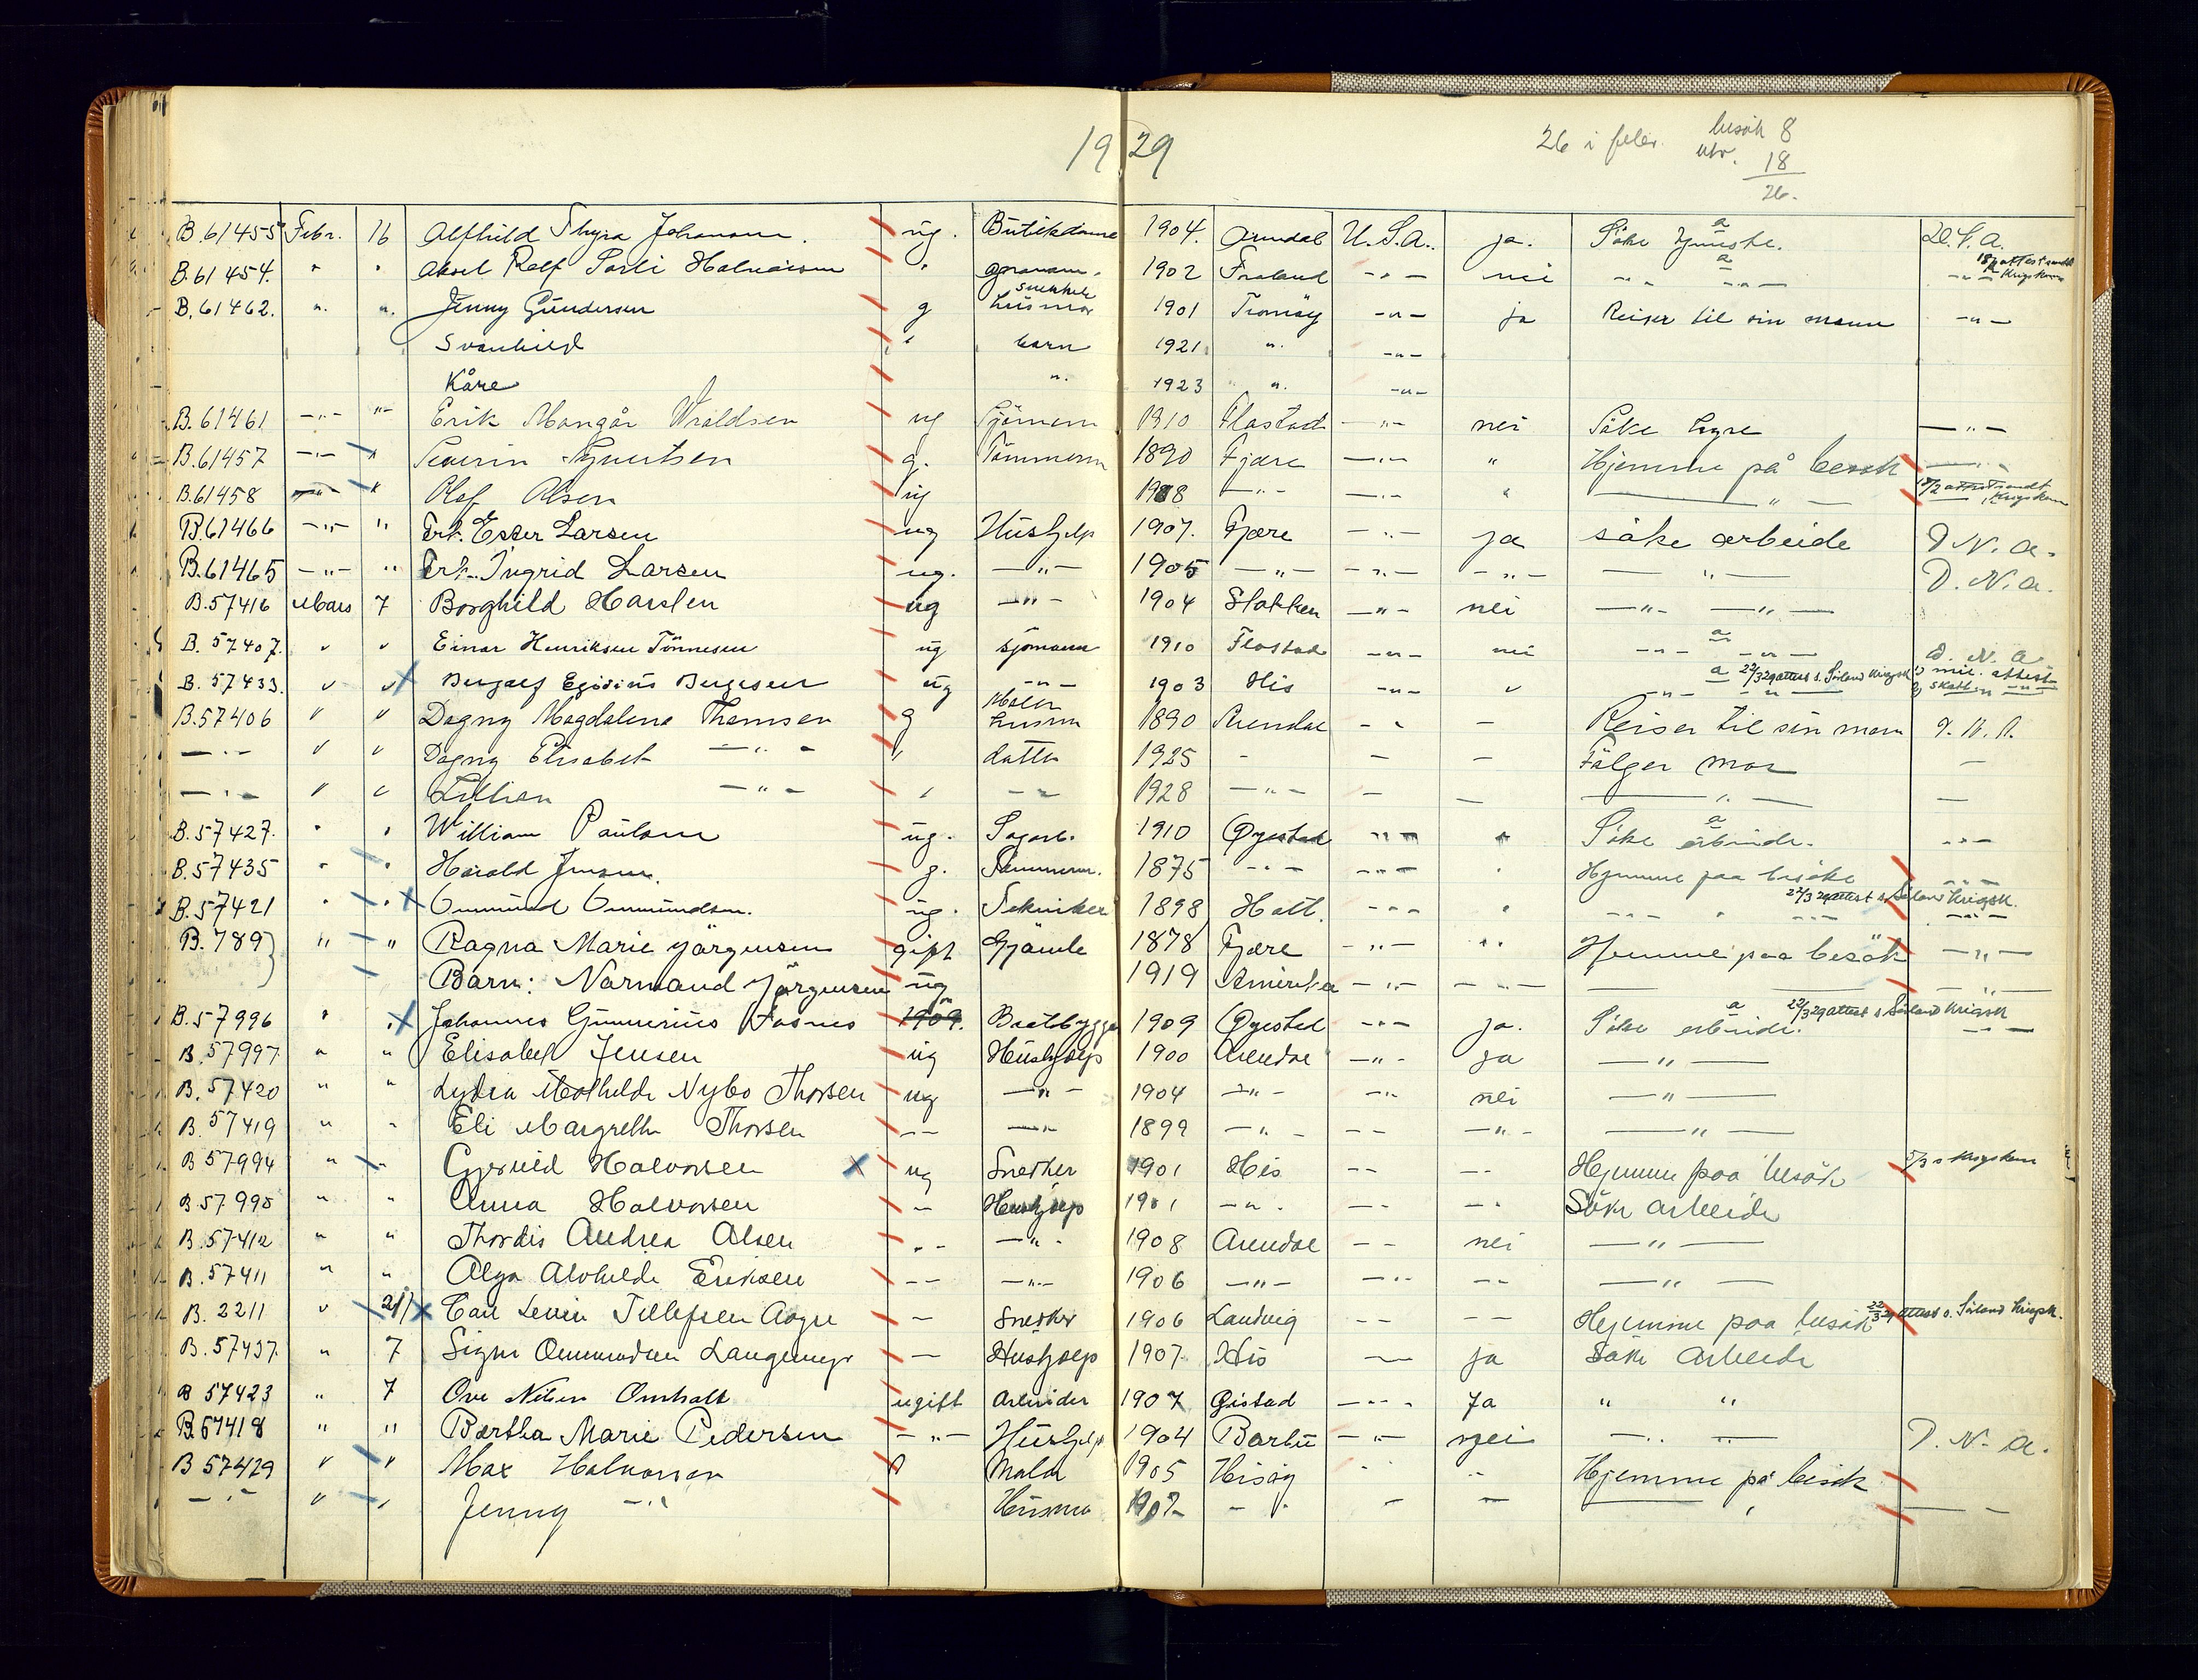 1929
26 i febr. besök 8
utv. 18
26.
B.61455 Febr. 16 Alfhild Thyra Johansen. ug. Butikdame 1904. Arendal U.S.A. ja. Söke tjeneste. a D.N.A.
B.61454. " " Aksel Rolf Sorli Halvorsen " 1902 Froland -"- nei -"- a -"- 18/2 attest sendt Krigskom
B.61462. " " Jenny Gundersen g husmor 1901 Tromöy -"- ja Reiser til sin mann -"-
Svanhild " barn 1921 " -"-
Kåre " 1923 " -"-
B.61461 -"- "- Erik Mangår Vroldsen ug Sjömann 1910 Flostad -"- nei Söke hyre -"-
B.61457 -"- " Severin Syvertsen g. Tömmerm 1890 Fjære -"- " Hjemme på besök -"-
B.61458 -"- " Olaf Olsen ug -"- -"- " -"- 18/2 attest sendt Krigskom
B.61466 -"- " Frk. Ester Larsen ug Hushjelp 1907. Fjære -"- ja söke arbeide D.N.A.
B.61465 -"- " Frk. Ingrid Larsen ug. -"- 1905 -"- -"- -"- -"- D.N.A.
B.57416 Mars 7 Borghild Harslen ug -"- 1904 Stokken -"- nei -"- -"-
B.57407. " " Einar Henriksen Tönnesen ug sjömann 1910 Flostad -"- nei -"- a -"- D.N.A
B.57433. " " Bergolf Egidius Bergesen ug -"- 1903 His -"- " -"- a -"- 22/3 29 attest s. Sörland Krigsk 1) mil. attest 2) skatten -"-
B.57406 " " Dagny Magdalena Thomsen g husm 1890 Arendal -"- - Reiser til sin mann D.N.A.
-"- " " Dagny Elisabet -"- " datter 1925 - - - Fölger mor -
-"- " " Lillian -"- " -"- 1928 -"- - - -"- -
B.57427. " " William Paulsen ug. Sagarb. 1910 Øyestad -"- " Söke arbeide. a -"-
B.57435 " " Harald Jensen. g. Tömmerm. 1875 -"- -"- " Hjemme paa besöke -"-
B.57421 " " Ommund Ommundsen. ug. Tekniker 1898 Holt. -"- " -"- " -"- 22/3 29 attest s. Sörland Krigsk. -"-
B.789 " " Ragna Marie Jörgensen gift Hjämle 1878 Fjære -"- " Hjemme paa besök -"-
Barn: Normand Jörgensen ug 1919 Amerika -"- -"- -"-
B.57996 " " Johannes Gunnerius Fosnes 1909. Baatbygger 1909 Øyestad -"- ja. Söke arbeide. a 22/3 29 attest s Sörland Krigsk -"-
B.57997. " " Elisabet Jensen ug Hushjælp 1900 Arendal -"- ja -"-
B.57420 " " Lydia Mathilde Nybo Thorsen ug -"- 1904 -"- -"- nei -"-
B.57419 " " Eli Margrethe Thorsen -- -"- 1899 -"- -- -"- -"-
B 57994 " " Gjeruld Halvorsen ug Snekker 1901 His -- -- Hjemme paa besök Krigskom
B.57998 " " Anna Halvorsen -- Hushjælp 1901 -"- -- -"- Söke arbeide
B.57412 " " Thordis Andrea Olsen -- -"- 1908 Arendal -- nei -"-
B.57411 " " Olga Alvhilde Eriksen -- -"- 1906 -"- -"- -- -"-
B.2211 " 21/1 Carl Levin Tellefsen Aagre - Snekker 1906 Landvig -- -- Hjemme paa besök 22/3 29 attest s. Sörland Krigsk.
B.57437. " 7 Signe Ommundsen Langemyr - Hushjælp 1907. His - ja Söke arbeide
B 57423 " 7 Ove Nilsen Omholt ugift Arbeider 1907 Öistad -"- Ja " "
B.57418 " " Bertha Marie Pedersen -"- Hushjelp 1904 Barbu -"- nei -"- -"- D.N.A.
B 57429 " " Max Halvorsen g Maler 1905 Hisöy " " Hjemme på besök
-"- " " Jenny -"- Husmor 1907- -"- - - -"- -